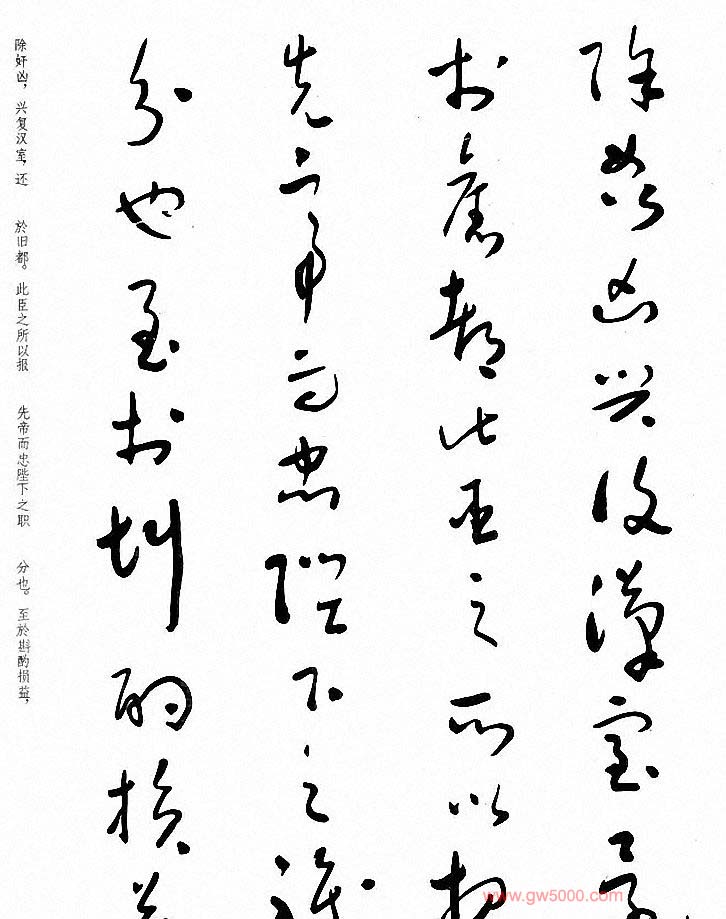 除姦凶興復漢室還
於舊都此臣之所以報
先帝而忠陛下之職
分也至於斟酌損益
除奸凶，兴复汉室，还
於旧都。此臣之所以报
先帝而忠陛下之职
分也。至於斟酌损益，
www.gw5000.com